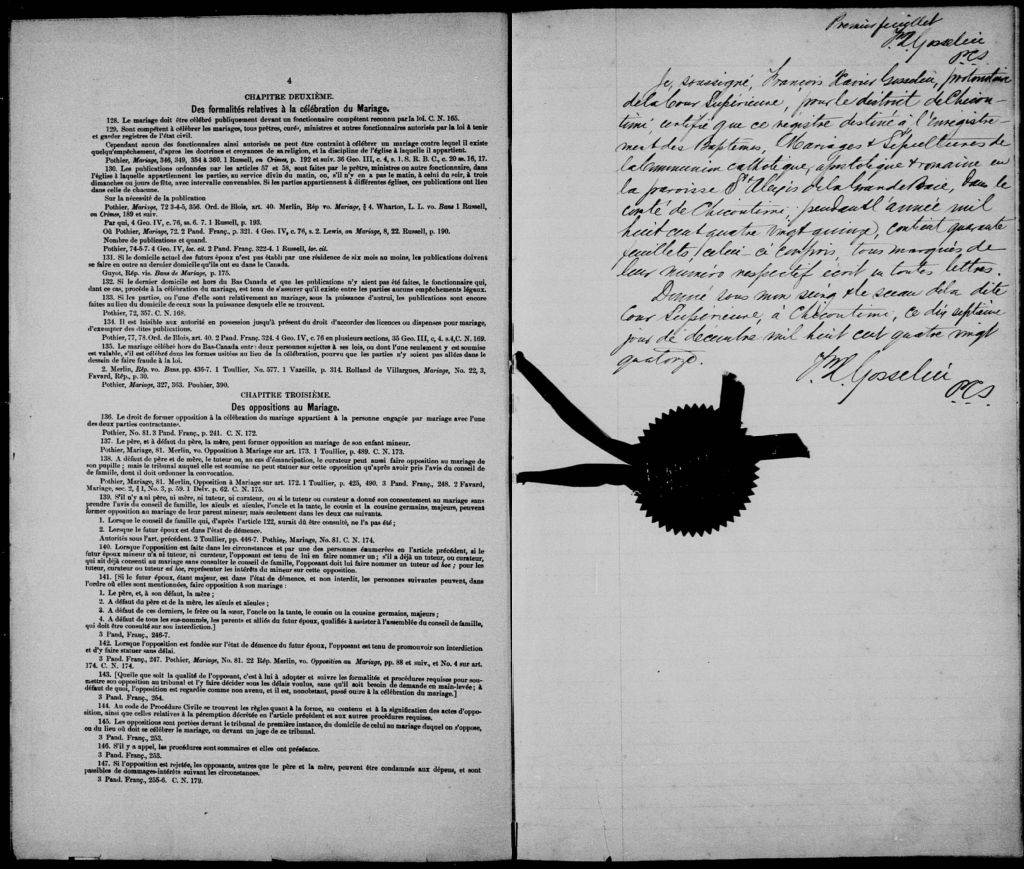 4
CHAPITRE DEUXIÈME.
Des formalités relatives à la célébration du Mariage.
128. Le mariage doit être célébré publiquement devant un fonctionnaire compétent reconnu par la loi. C. N. 165.
129. Sont compétent à célébrer les mariages, tous prêtres, curés, ministres et autres fonctionnaires autorisés par la loi à tenir
et garder registres de l'état civil.
Cependant aucun des fonctionnaires ainsi autorisés ne peut être contraint à célébrer un mariage contre lequel il existe
quelqu'empêchement, d'apres les doctrines et croyances de sa religion, et la discipline de l'église à laquelle il appartient.
Pothier, Mariage, 346, 349, 354 à 360. 1 Russell, on Crimes, p. 192 et suiv. 36 Geo. III, c. 4, s. 1. S. R. B. C., c. 20 ss. 16, 17.
130. Les publications ordonnées par les articles 57 et 58, sont faites par le prêtre, ministres ou autre fonctionnaire, dans
l'église à laquelle appartiennent les parties, au service divin du matin, ou, s'il n'y en a pas le matin, à celui du soir, à trois
dimanches ou jours de fête, avec intervalle convenables. Si les parties appartiennent à différentes églises, ces publications ont lieu
dans celle de chacune.
Sur la nécessité de la publication
Pothier, Mariage, 72 3-4-5, 356. Ord. de Blois, art. 40. Merlin, Rép vo. Mariage, § 4. Wharton, L. L. vo. Bans 1 Russell,
on Crimes, 189 et suiv.
Par qui, 4 Geo. IV, c. 76, ss. 6. 7. 1 Russell, p. 193.
Où Pothier, Mariage, 72. 2 Pand. Franç., p. 321. 4 Geo. IV, c. 76, s. 2. Lewis, on Mariage, 8, 22. Russell, p. 190.
Nombre de publications et quand.
Pothier, 74-5-7. 4 Geo. IV, loc. cit. 2 Pand. Franç. 322-4. 1 Russell, loc. cit.
131. Si le domicile actuel des futurs époux n'est pas établi par une résidence de six mois au moins, les publications doivent
se faire en outre au dernier domicile qu'ils ont eu dans le Canada.
Guyot, Rép. vis. Bans de Mariage, p. 175.
132. Si le dernier domicile est hors du Bas Canada et que les publications n'y aient pas été faites, le fonctionnaire qui,
dant ce cas, procède à la célébration du mariage, est tenu de s'assurer qu'il existe entre les parties aucuns empêchements légaux.
133. Si les parties, ou l'une d'elle sont relativement au mariage, sous la puissance d'autrui, les publications sont encore
faites au lieu du domicile de ceux sous la puissance desquels elle se trouvent.
Pothier, 72, 357. C. N. 168.
134. Il est loisible aux autorité en possession jusqu'à présent du droit d'accorder des licences ou dispenses pour mariage,
d'exempter des dites publications.
Pothier, 77, 78. Ord. de Blois, art. 40. 2 Pand. Franç. 324. 4 Geo. IV, c. 76 en plusieurs sections, 35 Geo. III, c. 4, s.4, C. N. 169.
135. Le mariage célébré hors du Bas-Canada entre deux personnes sujettes à ses lois, ou dont l'une seulement y est soumise
est valable, s'il est célébré dans les formes usitées au lieu de la célébration, pourvu que les parties n'y soient pas allées dans le
dessein de faire fraude à la loi.
2. Merlin, Rép. vo. Bans. pp. 436-7. 1 Toullier, No. 577. 1 Vazeille, p. 314. Rolland de Villargues, Mariage, No. 22, 3,
Favard, Rép., p. 30.
Pothier, Mariage, 327, 363. Pouhier, 390.
CHAPITRE TROISIÈME.
Des oppositions au Mariage.
136. Le droit de former opposition à la célébration du mariage appartient à la personne engagée par mariage avec l'une
des deux parties contractantes.
Pothier, No. 81. 3 Pand. Franç., p. 241. C. N. 172.
137. Le père, et à défaut du père, la mère, peut former opposition au mariage de son enfant mineur.
Pothier, Mariage, 81. Merlin, vo. Opposition à Mariage sur art. 173. 1 Toullier, p. 489. C. N. 173.
138. A défaut de père et de mère, le tuteur ou, an cas d'émancipation, le curateur peut aussi faire opposition au mariage de
son pupille; mais le tribunal auquel elle est soumise ne peut statuer sur cette opposition qu'après avoir pris l'avis du conseil de
de famille, dont il doit ordonner la convocation.
Pothier, Mariage, 81. Merlin, Opposition à Mariage sur art. 172. 1 Toullier, p. 425, 490. 3 Pand. Franç., 248. 2 Favard,
Mariage, sec. 2, § 1, No. 3, p. 59. 1 Delv. p. 62. C. N. 175.
139. S'il n'y a ni père, ni mère, ni tuteur, ni curateur, ou si le tuteur ou curateur a donné son consentement au mariage sans
prendre l'avis du conseil de famille, les aïeuls et aïeules, l'oncle et la tante, le cousin et la cousine germains, majeurs, peuvent
former opposition au mariage de leur parent mineur; mais seulement dans les deux cas suivants.
1. Lorsque le conseil de famille qui, d'après l'article 122, aurait dû être consulté, ne l'a pas été;
2. Lorsque le futur époux est dans l'état de démence.
Autorités sous l'art. précédent. 2 Toullier, pp. 446-7. Pothier, Mariage, No. 81. C. N. 174.
140. Lorsque l'opposition est faite dans les circonstances et par une des personnes énumerées en l'article précédent, si le
futur époux mineur n'a ni tuteur, ni curateur, l'opposant est tenu de lui en faire nommer un; s'il a déjà un tuteur, ou curateur,
qui ait déjà consenti au mariage sans consulter le conseil de famille, l'opposant doit lui faire nommer un tuteur ad hoc; pour les
tuteur, curateur ou tuteur ad hoc, représenter les intérêts du mineur sur cette opposition.
141. [Si le futur époux, étant majeur, est dans l'état de démence, et non interdit, les personnes suivantes peuvent, dans
l'ordre où elles sont mentionnées, faire opposition à son mariage:
1. Le père, et, à son défaut, la mère;
2. A défaut du père et de la mère, les aïeuls et aïeules;
3. A défaut de ces derniers, le frère ou la sœur, l'oncle ou la tante, le cousin ou la cousine germains, majeurs;
4. A défaut de tous les sus-nommés, les parents et alliés du futur époux, qualifiés à assister à l'assemblée du conseil de famille,
qui doit être consulté sur son interdiction.]
3 Pand. Franç., 246-7.
142. Lorsque l'opposition est fondée sur l'état de démence du futur époux, l'opposant est tenu de promouvoir son interdiction
et d'y faire statuer sans délai.
3 Pand. Franç., 247. Pothier, Mariage, No. 81. 22 Rép. Merlin, vo. Opposition au Mariage, pp. 88 et suiv., et No. 4 sur art.
174. C. N. 174.
143. [Quelle que soit la qualité de l'opposant, c'est à lui à adopter et suivre les formalités et procédures requises pour sou-
mettre son opposition au tribunal et l'y faire décider sous les délais voulus, sans qu'il soit besoin de demande en main-levée; à
défaut de quoi, l'opposition est regardée comme non aveau, et il est, nonobstant, passé outre à la célébration du mariage.]
3 Pand. Franç., 254.
144. Au code de Procédure Civile se trouvent les règles quant à la forme, au contenu et à la signification des actes d'oppo-
sition, ainsi que celles relatives à la péremption décrétée en l'article précédent et aux autres procédures requises.
145. Les oppositions sont portées devant le tribunal de première instance, du domicile de celui au mariage duquel on s'oppose,
ou du lieu où doit se célébrer le mariage, ou devant un juge de ce tribunal.
3 Pand. Franç., 253.
146. S'il y a appel, les procédures sont sommaires et elles ont préséance.
3 Pand. Franç., 253.
147. Si l'opposition est rejetée, les opposants, autres que le père et la mère, peuvent être condamnés aux dépens, et sont
passibles de dommages-intérêts suivant les circonstances.
3 Pand. Franç., 255-6. C. N. 179.
Premier feuillet
Gosselin
P.C.S.
Je, soussigné, François Xavier Gosselin, protonotaire
de la Cour Supérieure, pour le district de Chicou-
timi, certifie que ce registre destiné à l'enregistre-
ment des Baptêmes, Mariages & Sépultures de
la Communion catholique, apostolique & romaine en
la paroisse St Alexis de la Grande Baie, dans le
comté de Chicoutimi, pendant l'année mil
huit cent quatre vingt quinze, contient quarante
feuillets, celui-ci compris, tous marqués de
leur numéro respectif écrit en toutes lettres.
Donné sous mon seing & le sceau de la dite
Cour Supérieure, à Chicoutimi, ce dix septième
jour de décembre mil huit cent quatre vingt
quatorze.
Gosselin
P.C.S.